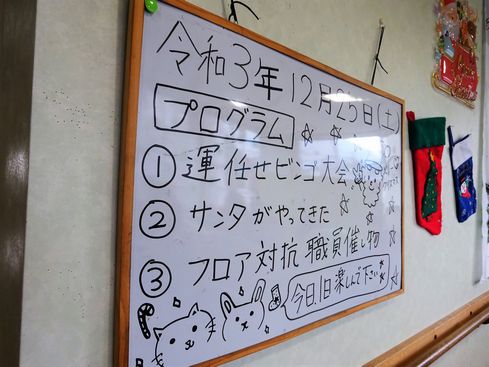 令和3年12月25日(土)
プログラム
① 運任せビンゴ大会
② サンタがやってきた
③ フロア対抗 職員催し物
今日1日楽しんで下さい